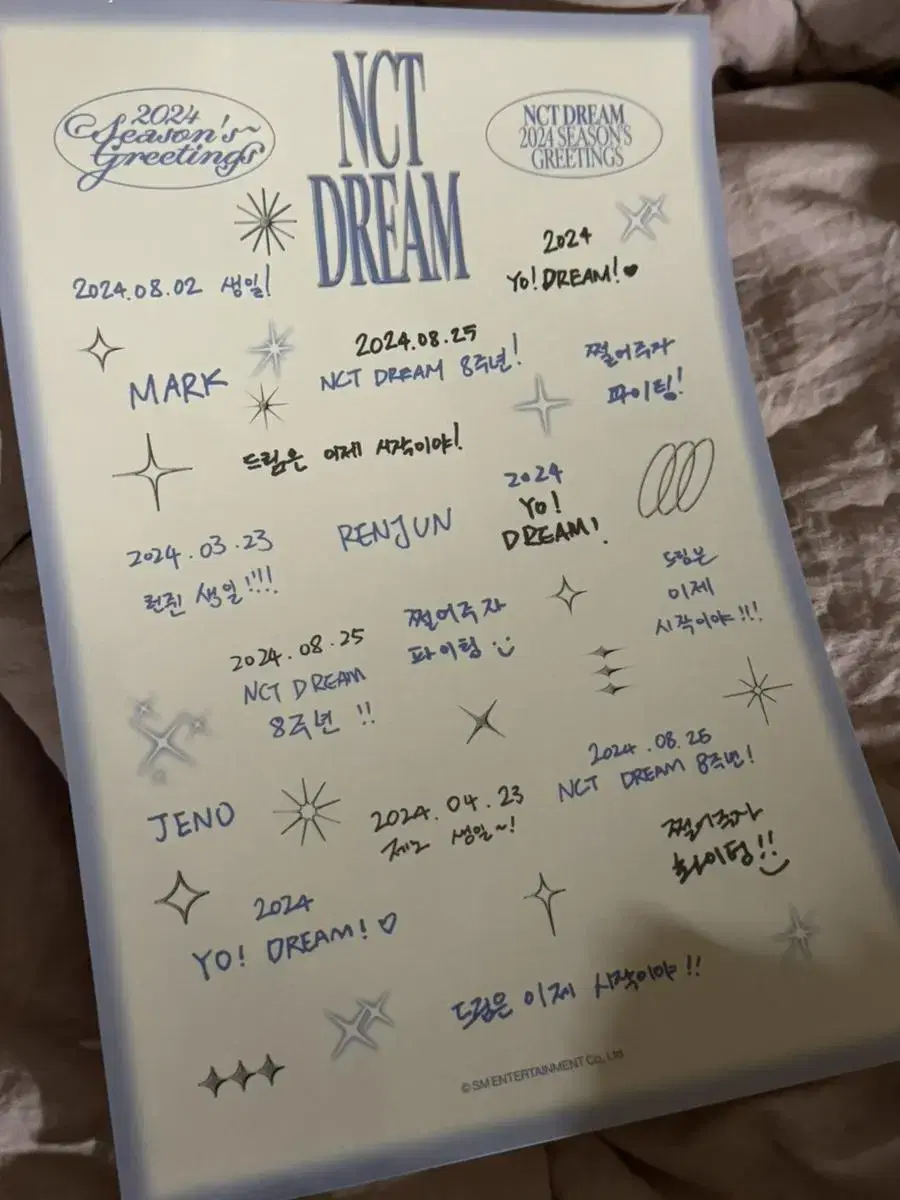 2024
Season's
Greetings
NCT
DREAM
NCT DREAM
2024 SEASON'S
GREETINGS
2024.08.02 생일!
2024
YO! DREAM!♥
MARK
2024.08.25
NCT DREAM 8주년!
쩔어주자
파이팅!
드림은 이제 시작이야!
2024.03.23
런쥔 생일!!!!
RENJUN
2024
YO!
DREAM!
드림은
이제
시작이야!!!
2024.08.25
NCT DREAM
8주년 !!
쩔어주자
파이팅
JENO
2024.04.23
제노 생일~!
2024.08.25
NCT DREAM 8주년!
쩔어주자
화이팅!!
2024
YO! DREAM!♡
드림은 이제 시작이야!!
© SM ENTERTAINMENT Co., Ltd